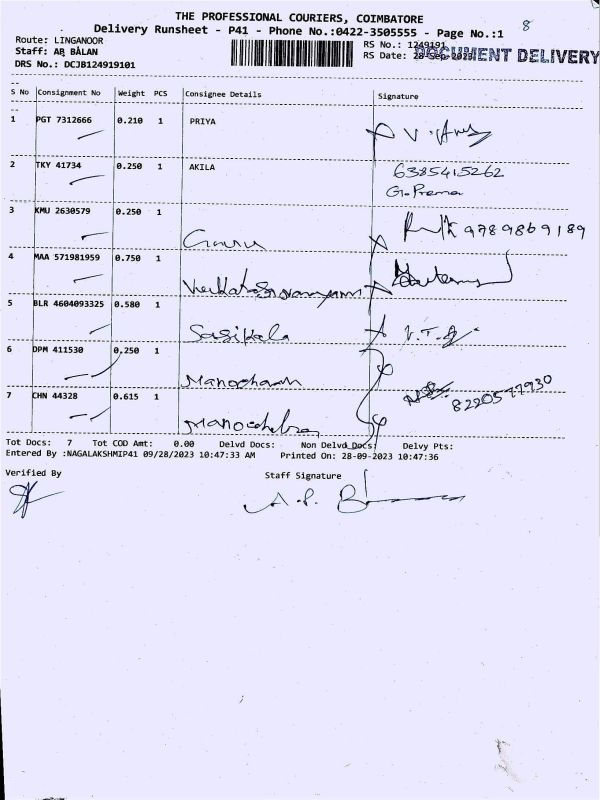 THE PROFESSIONAL COURIERS, COIMBATORE
8
Delivery Runsheet - P41 - Phone No.:0422-3505555 - Page No.:1
Route: LINGANOOR
RS No.: 1249191
Staff: AR BALAN
RS Date: 28-Sep-2023
DOCUMENT DELIVERY
DRS No.: DCJB124919101
S No Consignment No Weight PCS Consignee Details Signature
1 PGT 7312666 0.210 1 PRIYA
2 TKY 41734 0.250 1 AKILA 6385415262
G. Prema
3 KMU 2630579 0.250 1 9789869189
4 MAA 571981959 0.750 1
5 BLR 4604093325 0.580 1 Sasikala
6 DPM 411530 0.250 1
7 CHN 44328 0.615 1 8220577930
Tot Docs: 7 Tot COD Amt: 0.00 Delvd Docs: Non Delvd Docs: Delvy Pts:
Entered By :NAGALAKSHMIP41 09/28/2023 10:47:33 AM Printed On: 28-09-2023 10:47:36
Verified By
Staff Signature